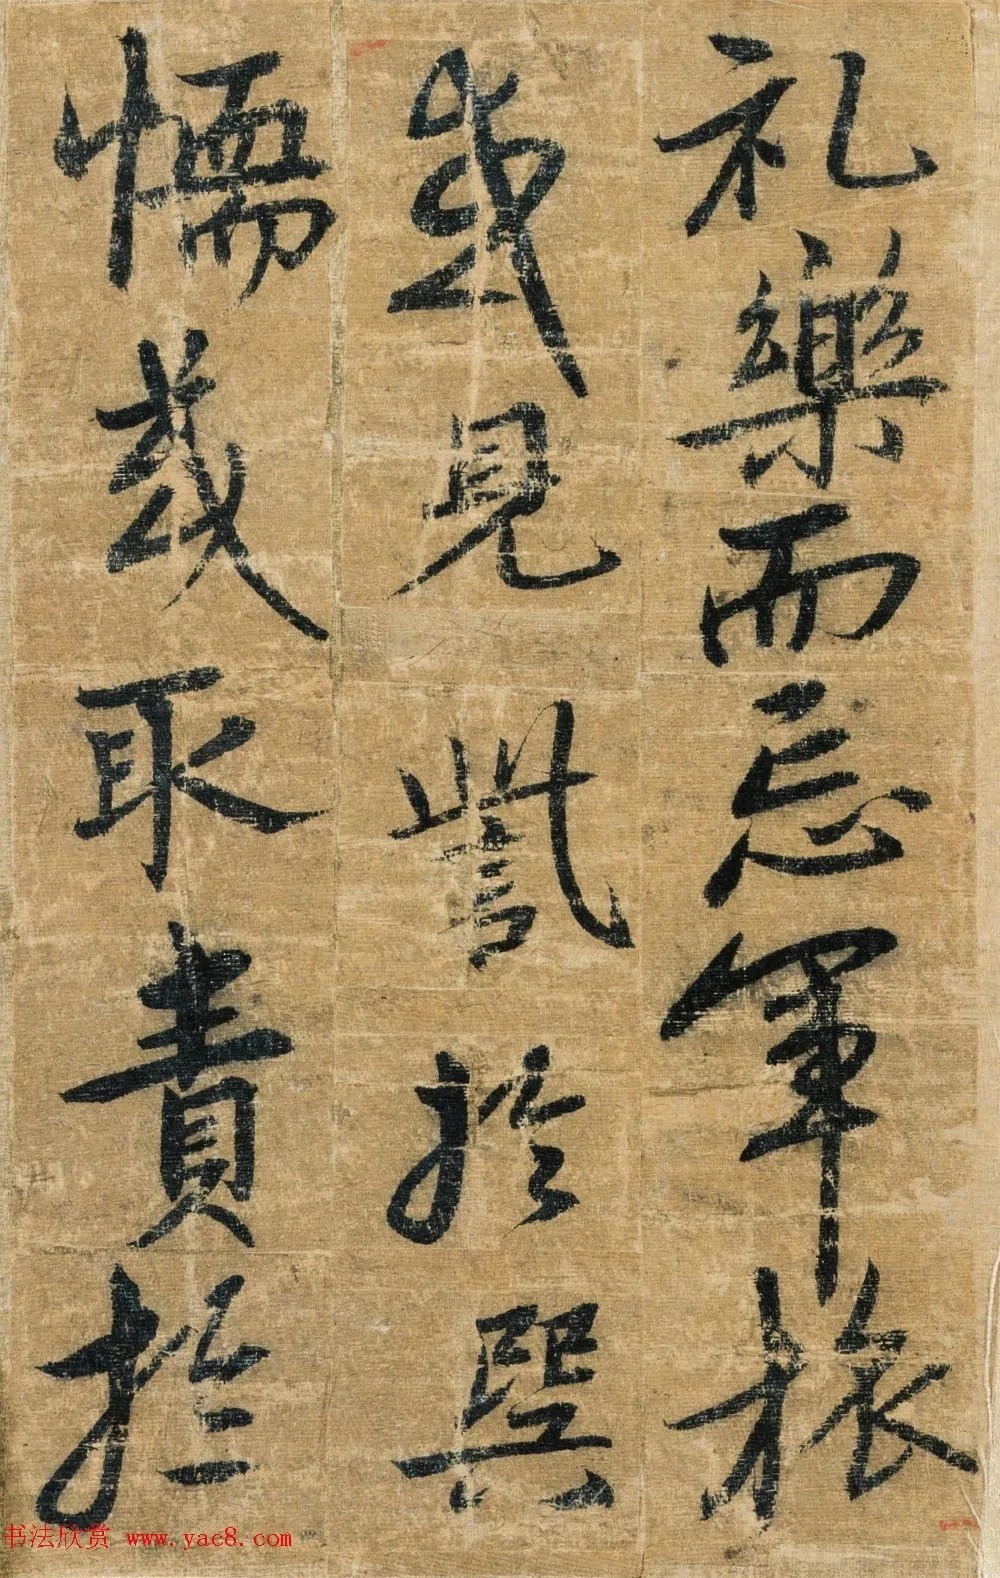 礼樂而忘軍旅
或見譏於巽
懦或取責於
书法欣赏 www.yac8.com